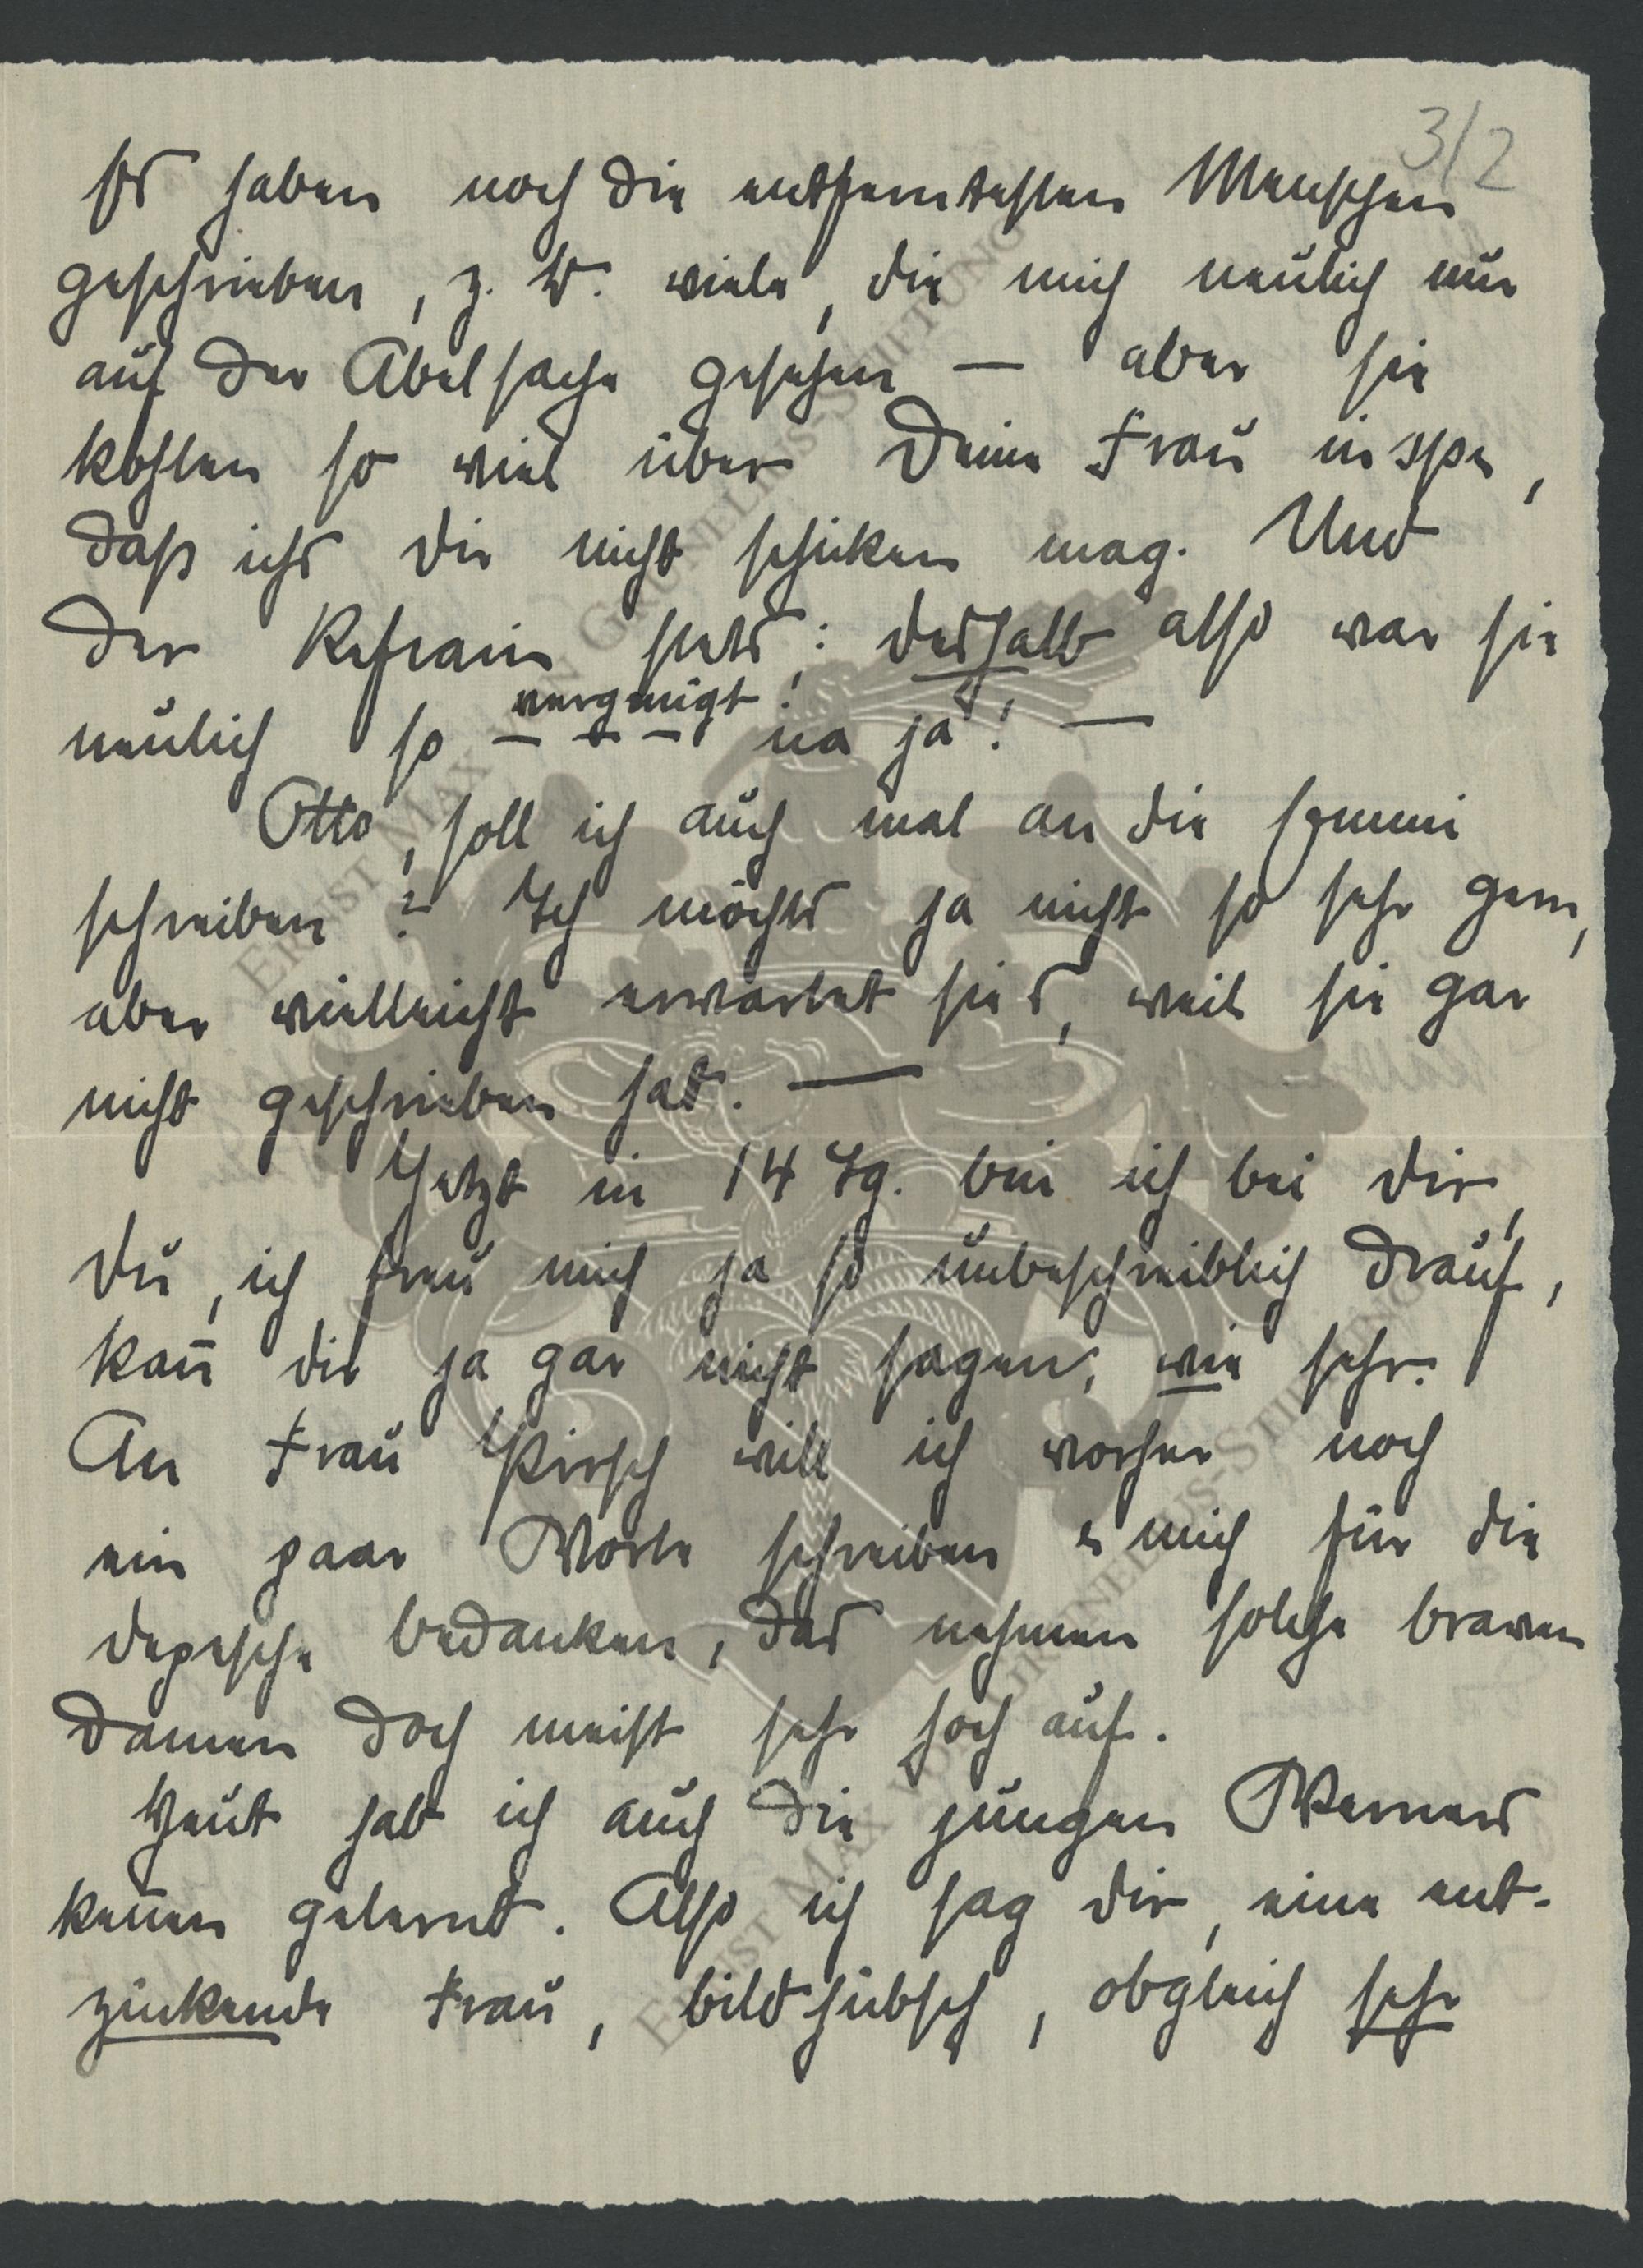 3/2
Es haben noch die entferntesten Menschen
geschrieben, z. B. viele, die mich neulich nur
auf der Abelsache gesehen — aber sie
kohlen so viel über Deine Frau in spe,
daß ichs Dir nicht schicken mag. Und
der Refrain stets: deshalb also war sie
neulich so – – – vergnügt! na ja! —
Otto, soll ich auch mal an die
schreiben? Ich möchts ja nicht so sehr gern,
aber vielleicht erwartet sies, weil sie gar
nicht geschrieben hat. —
Jetzt in 14 Tg. bin ich bei Dir,
Du, ich freu mich ja so unbeschreiblich drauf,
kan̄ Dir ja gar nicht sagen, wie sehr.
An Frau Pirsch will ich vorher noch
ein paar Worte schreiben u mich für die
Depesche bedanken, das nehmen solche braven
Damen doch meist sehr hoch auf.
Heut hab ich auch die jungen Werners
ken̄en gelernt. Also ich sag Dir, eine ent-
zückende Frau, bildhübsch, obgleich sehr
ERNST MAX VON GRUNELIUS-STIFTUNG
ERNST MAX VON GRUNELIUS-STIFTUNG